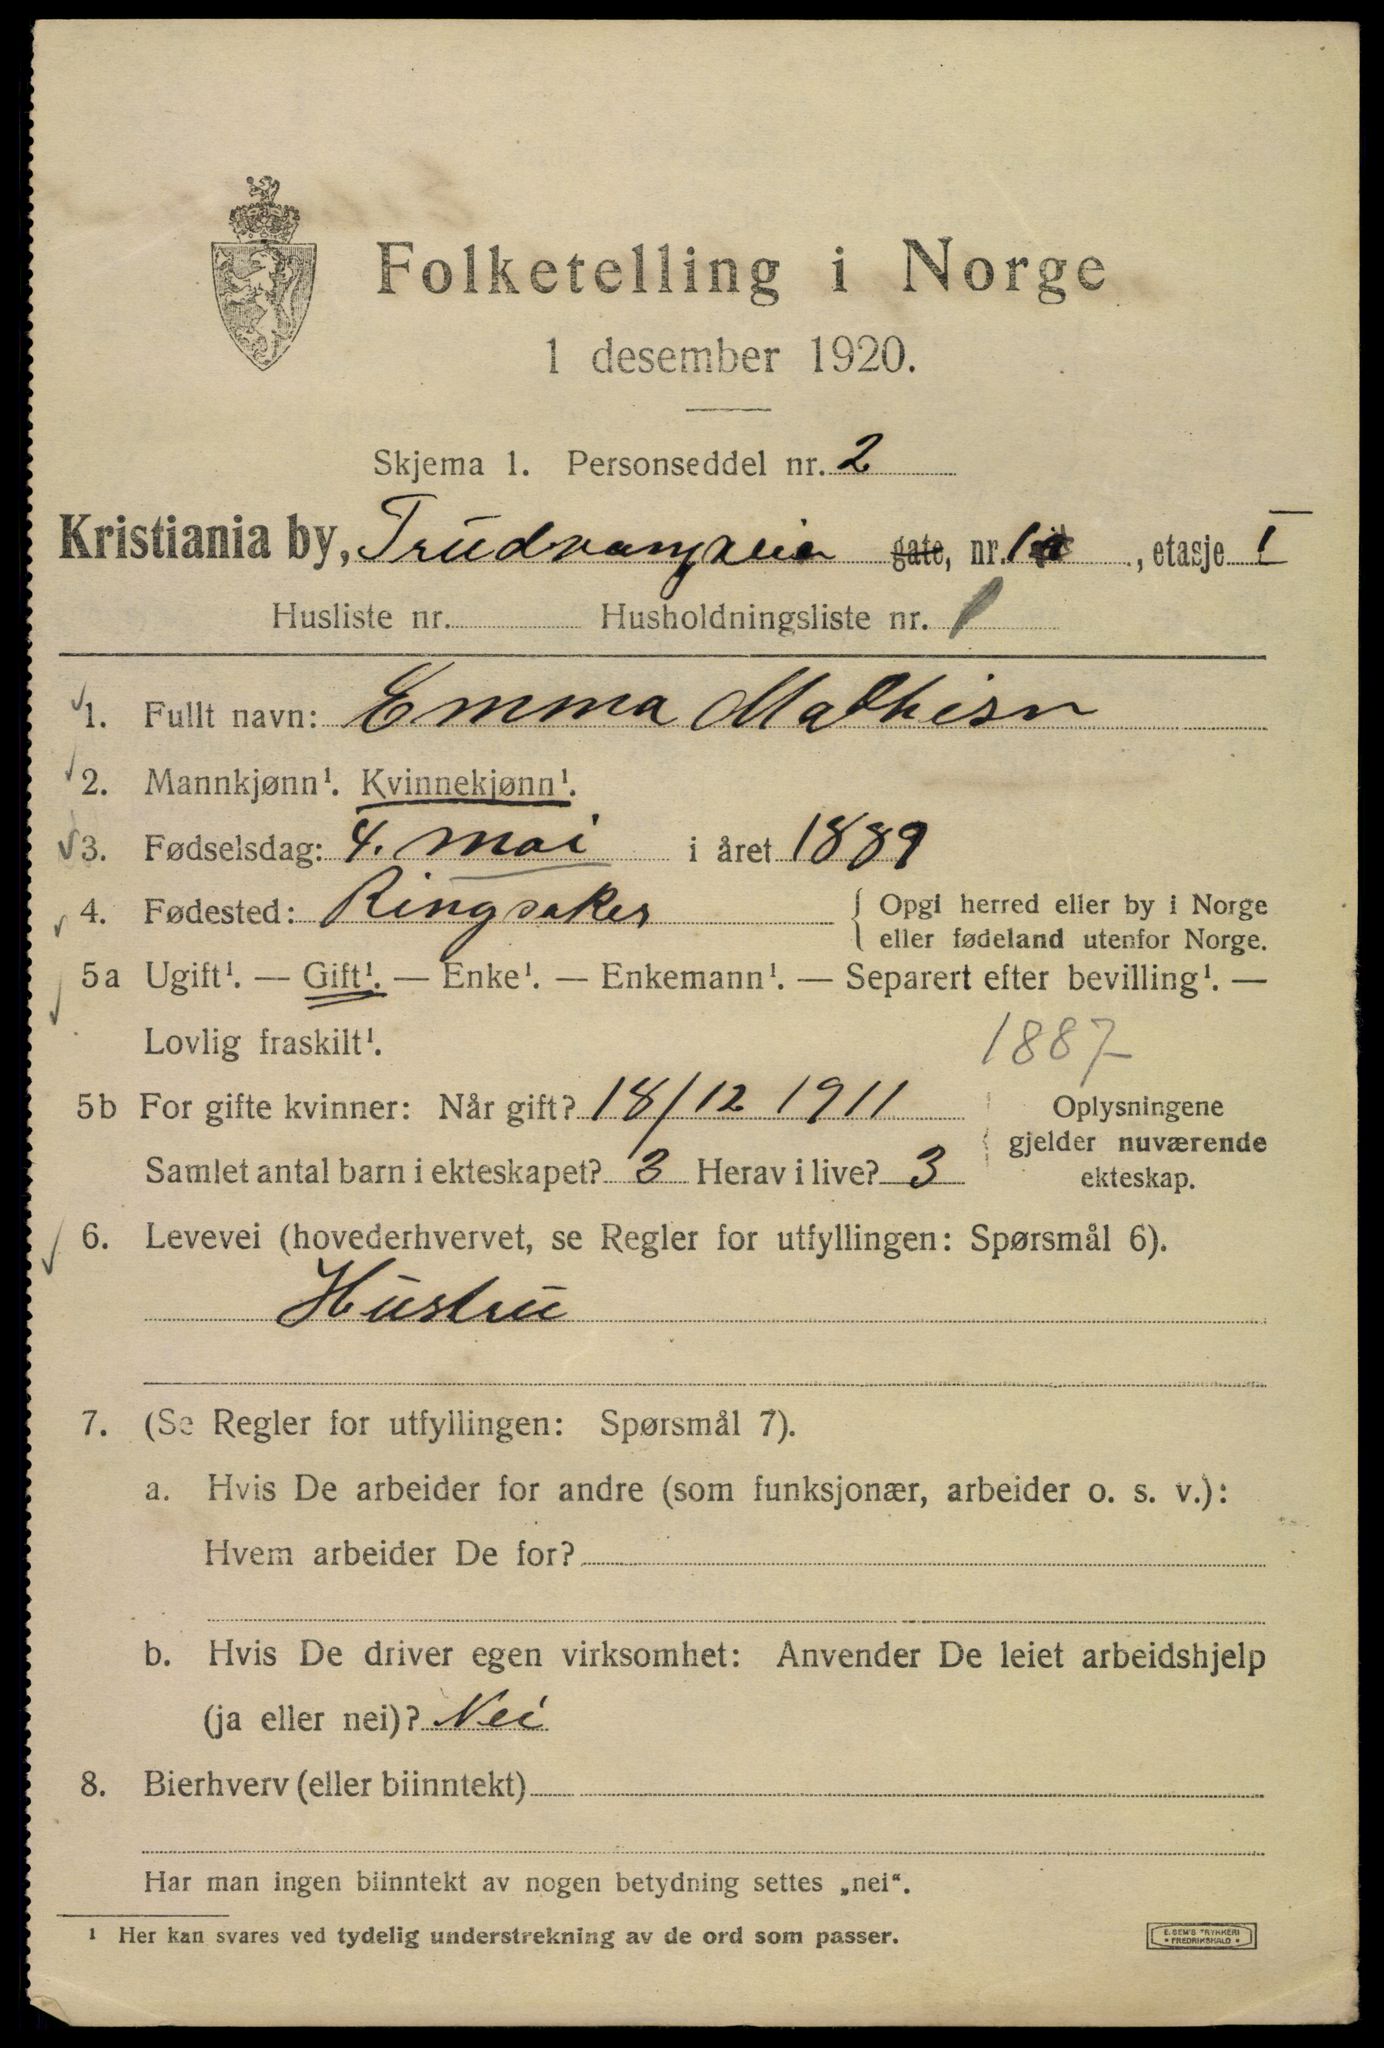 Folketelling i Norge
1 desember 1920.
Skjema 1. Personseddel nr. 2
Kristiania by, Trudvangveien gate, nr. 1, etasje I
Husliste nr. Husholdningsliste nr. 1
1. Fullt navn: Emma Mathisen
2. Mannkjønn¹. Kvinnekjønn¹.
3. Fødselsdag: 4. mai i året 1889
4. Fødested: Ringsaker { Opgi herred eller by i Norge
eller fødeland utenfor Norge.
5a Ugift¹. — Gift¹. — Enke¹. — Enkemann¹. — Separert efter bevilling¹. —
Lovlig fraskilt¹.
1887
5b For gifte kvinner: Når gift? 18/12 1911
Samlet antal barn i ekteskapet? 3 Herav i live? 3
{ Oplysningene
gjelder nuværende
ekteskap.
6. Levevei (hovederhvervet, se Regler for utfyllingen: Spørsmål 6).
Hustru
7. (Se Regler for utfyllingen: Spørsmål 7).
a. Hvis De arbeider for andre (som funksjonær, arbeider o. s. v.):
Hvem arbeider De for?
b. Hvis De driver egen virksomhet: Anvender De leiet arbeidshjelp
(ja eller nei)? Nei
8. Bierhverv (eller biinntekt) —
Har man ingen biinntekt av nogen betydning settes „nei“.
¹ Her kan svares ved tydelig understrekning av de ord som passer.
E. SEM'S TRYKKERI
* FREDRIKSHALD *